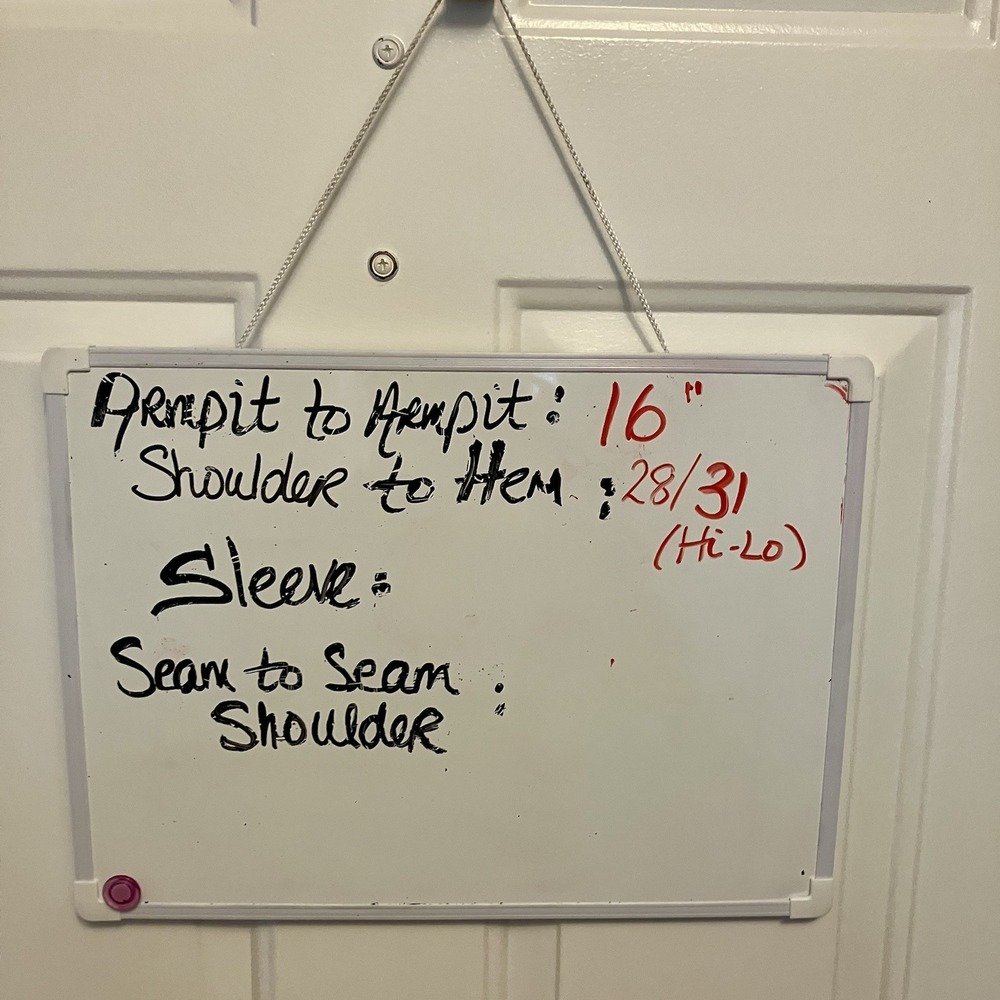 Armpit to Armpit: 16"
Shoulder to Hem : 28/31
(Hi-Lo)
Sleeve:
Seam to Seam :
Shoulder